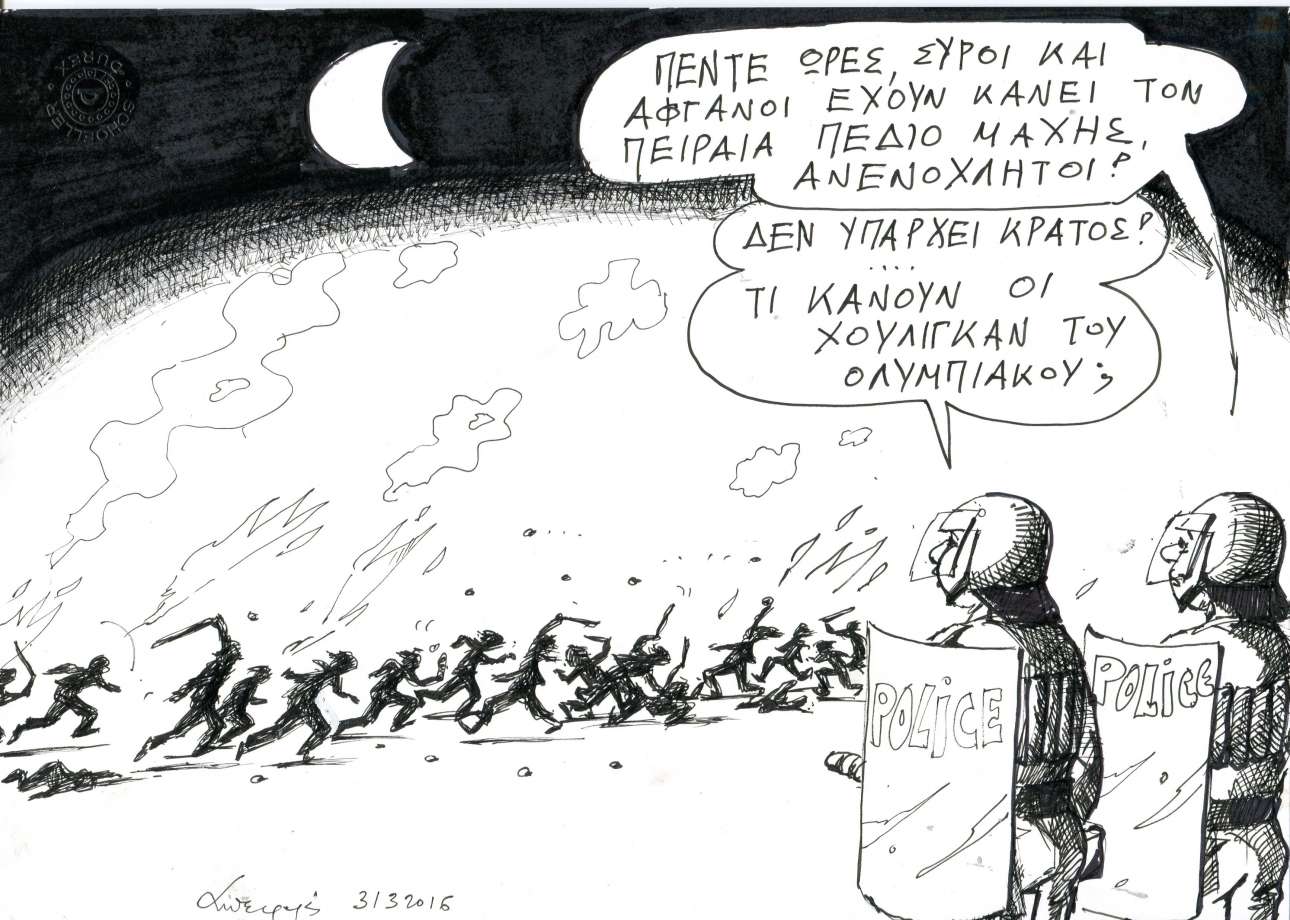 ΠΕΝΤΕ ΩΡΕΣ, ΣΥΡΟΙ ΚΑΙ
ΑΦΓΑΝΟΙ ΕΧΟΥΝ ΚΑΝΕΙ ΤΟΝ
ΠΕΙΡΑΙΑ ΠΕΔΙΟ ΜΑΧΗΣ,
ΑΝΕΝΟΧΛΗΤΟΙ?
ΔΕΝ ΥΠΑΡΧΕΙ ΚΡΑΤΟΣ?
....
ΤΙ ΚΑΝΟΥΝ ΟΙ
ΧΟΥΛΙΓΚΑΝ ΤΟΥ
ΟΛΥΜΠΙΑΚΟΥ;
POLiCE
POLiCE
3/3 2016
SCHOELLER
DUREX